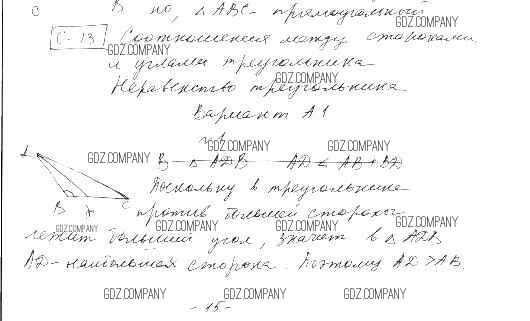 В но, △ABC - прямоугольный
GDZ.COMPANY
С-13 Соотношения между сторонами
GDZ.COMPANY
и углами треугольника
GDZ.COMPANY
Неравенство треугольника
Вариант А1
№1
GDZ.COMPANY GDZ.COMPANY
GDZ.COMPANY В △ ADB AD < AB + BD
Поскольку в треугольнике
B A C
против большей стороны
GDZ.COMPANY GDZ.COMPANY GDZ.COMPANY GDZ.COMPANY
лежит больший угол, значит в △ ADB
AD - наибольшая сторона. Поэтому AD > AB.
GDZ.COMPANY GDZ.COMPANY GDZ.COMPANY
- 15 -